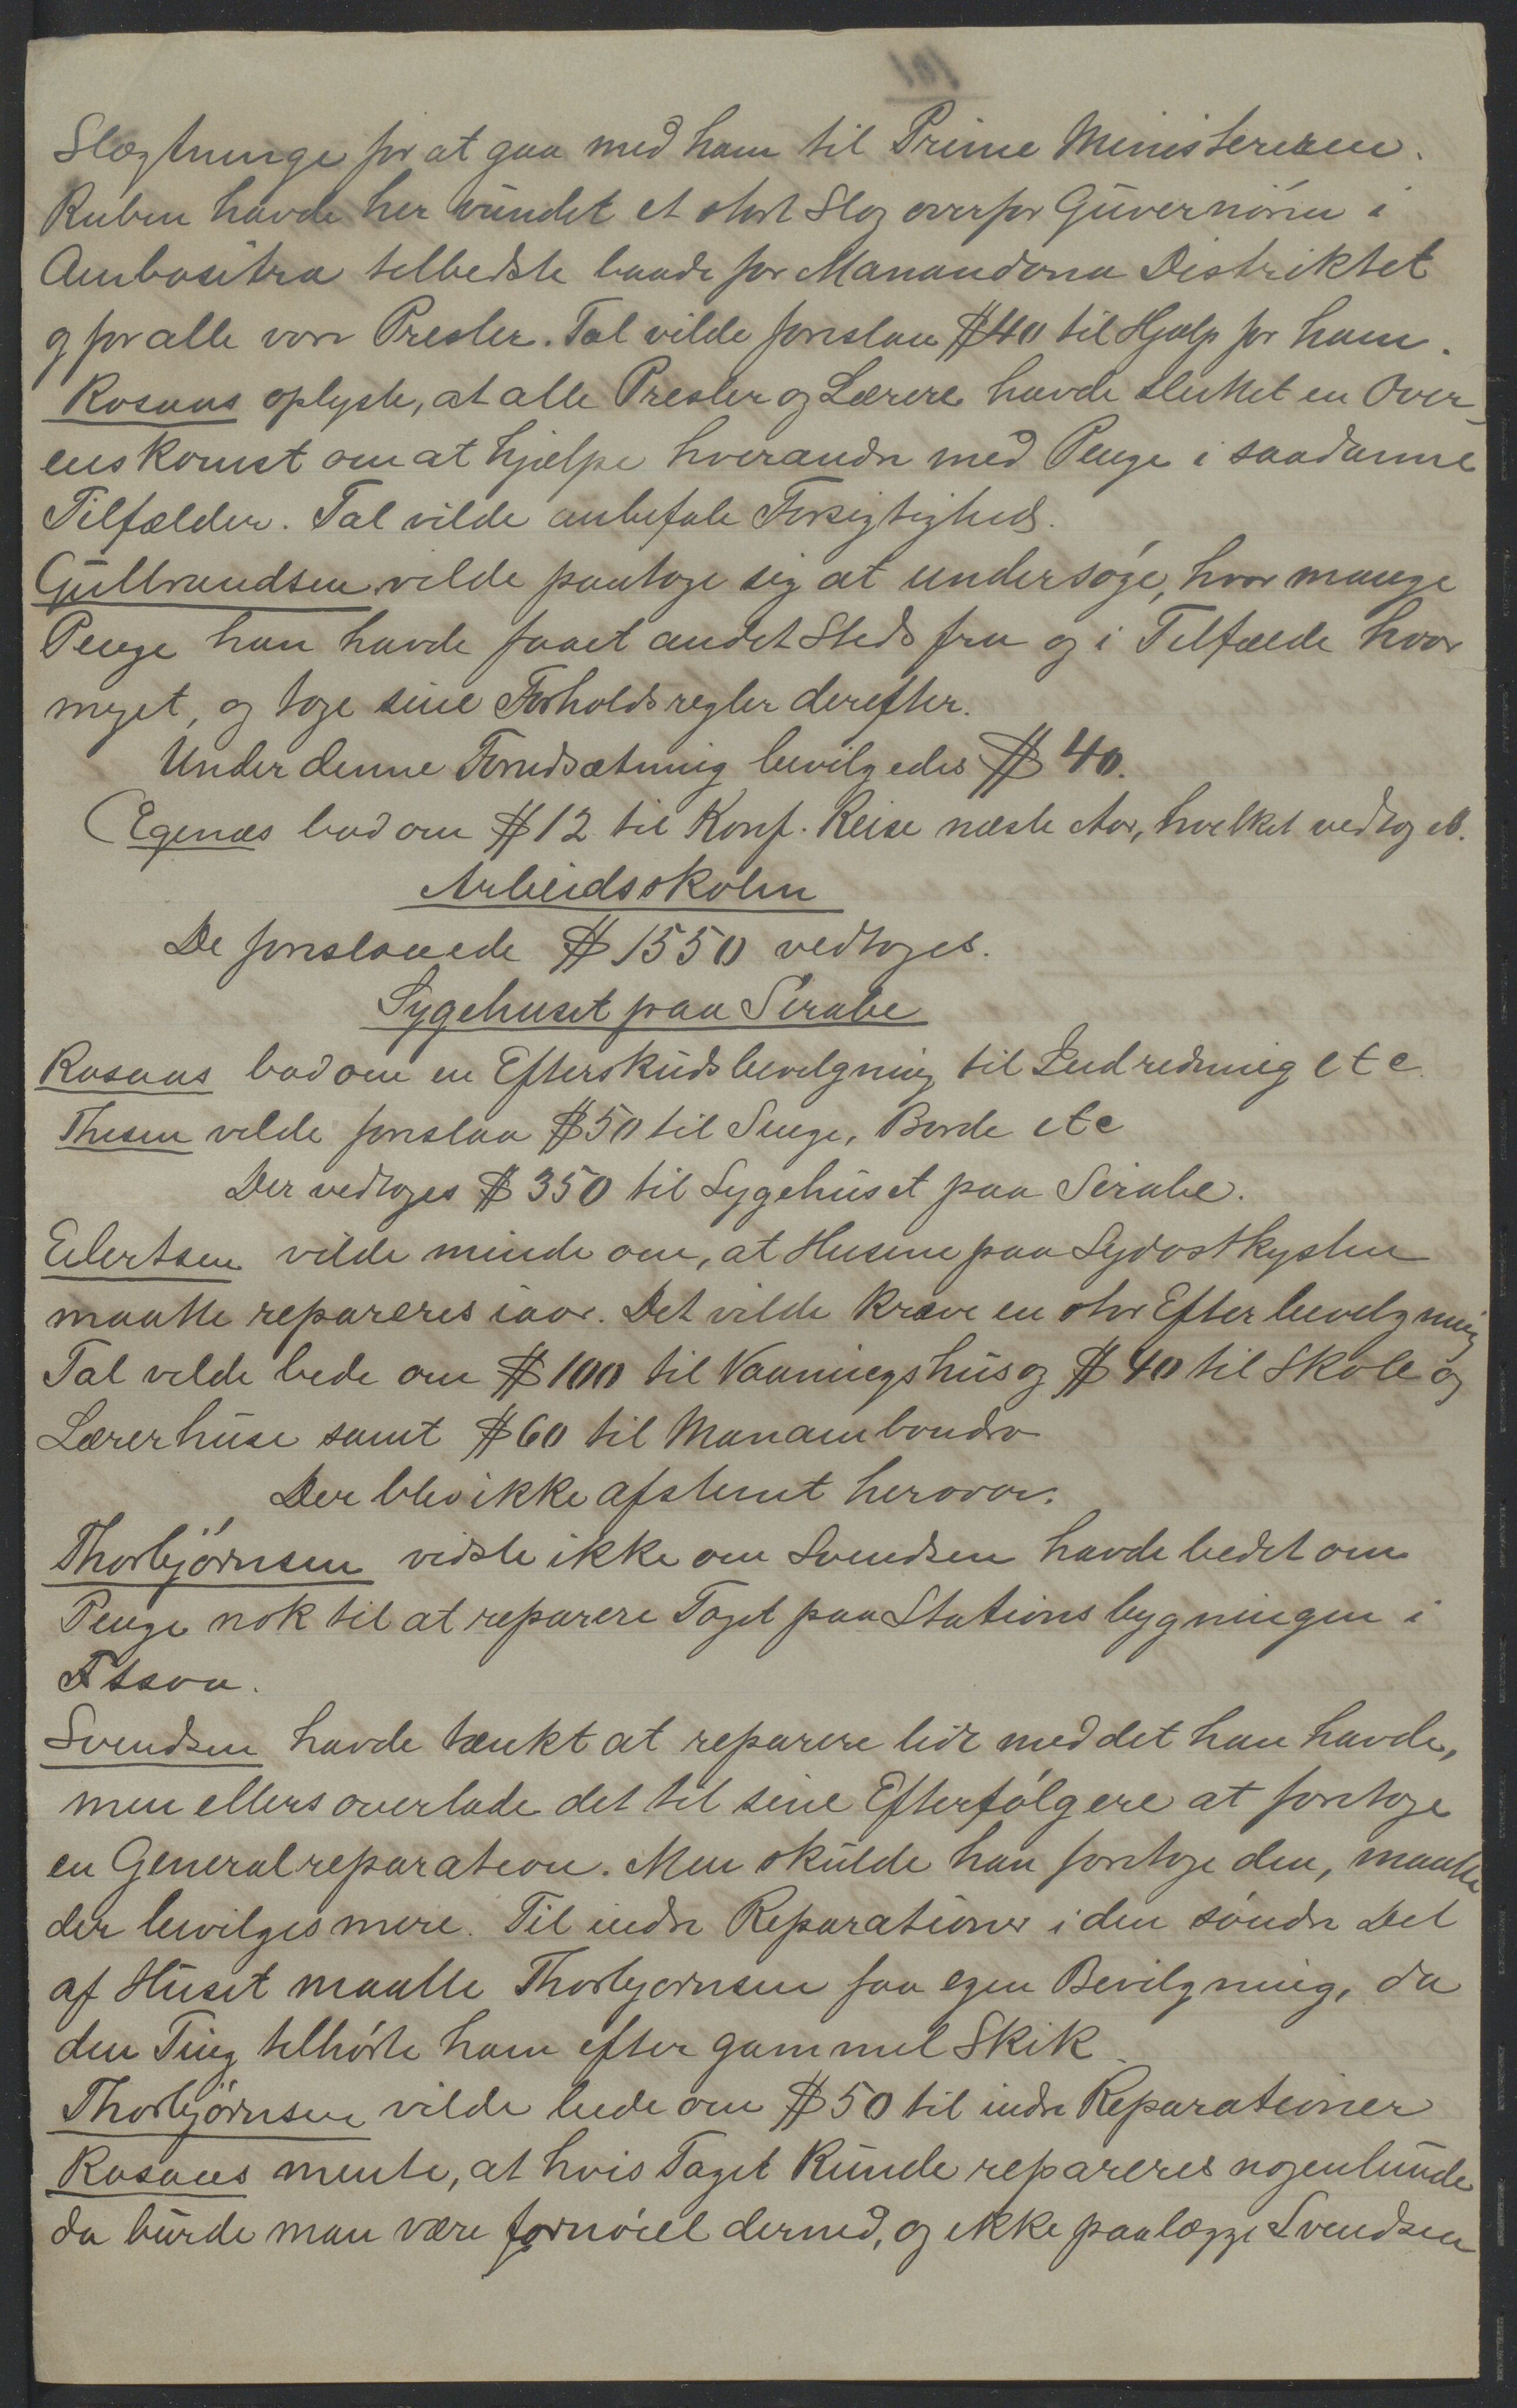 101
Slægtninge for at gaa med ham til Prime Ministereren.
Ruben havde her vundet et stort Slag overfor Guvernøren i
Ambositra tilbedste baade for Manandona Distriktet
og for alle vore Prester. Tal vilde foreslaa $40 til Hjælp for ham.
Rosaas oplyste, at alle Prester og Lærere havde sluttet en Over-
enskomst om at hjælpe hverandre med Penge i saadanne
Tilfælder. Tal vilde anbefale Forsigtighed.
Gulbrandsen vilde paatage sig at undersøge, hvor mange
Penge han havde faaet andet Steds fra og i Tilfælde hvor
meget, og tage sine Forholdsregler derefter.
Under denne Forudsætning bevilgedes $ 40.
Egenæs bad om $ 12 til Konf. Reise næste Aar, hvilket vedtoges.
Arbeidsskolen
De foreslaaede $ 1550 vedtoges.
Sygehuset paa Sirabe
Rosaas bad om en Efterskudsbevilgning til Indredning etc.
Thesen vilde foreslaa $50 til Senge, Borde etc
Der vedtoges $ 350 til Sygehuset paa Sirabe.
Eilertsen vilde minde om, at Husene paa Sydostkysten
maatte repareres iaar. Det vilde kræve en stor Efterbevilgning
Tal vilde bede om $ 100 til Vaaningshus og $ 40 til Skole og
Lærerhuse samt $60 til Manambondro
Der blev ikke afstemt herover.
Thorbjørnsen vidste ikke om Svendsen havde bedet om
Penge nok til at reparere Taget paa Stationsbygningen i
Ftsoa.
Svendsen havde tænkt at reparere lidt med det han havde,
men ellers overlade det til sine Efterfølgere at foretage
en Generalreparation. Men skulde han foretage den, maatte
der bevilges mere. Til indre Reparationer i den søndre Del
af Huset maatte Thorbjørnsen faa egen Bevilgning, da
den Ting tilhørte ham efter gammel Skik.
Thorbjørnsen vilde bede om $ 50 til indre Reparationer
Rosaas mente, at hvis Taget kunde repareres nogenlunde
da burde man være fornøiet dermed, og ikke paalægge Svendsen